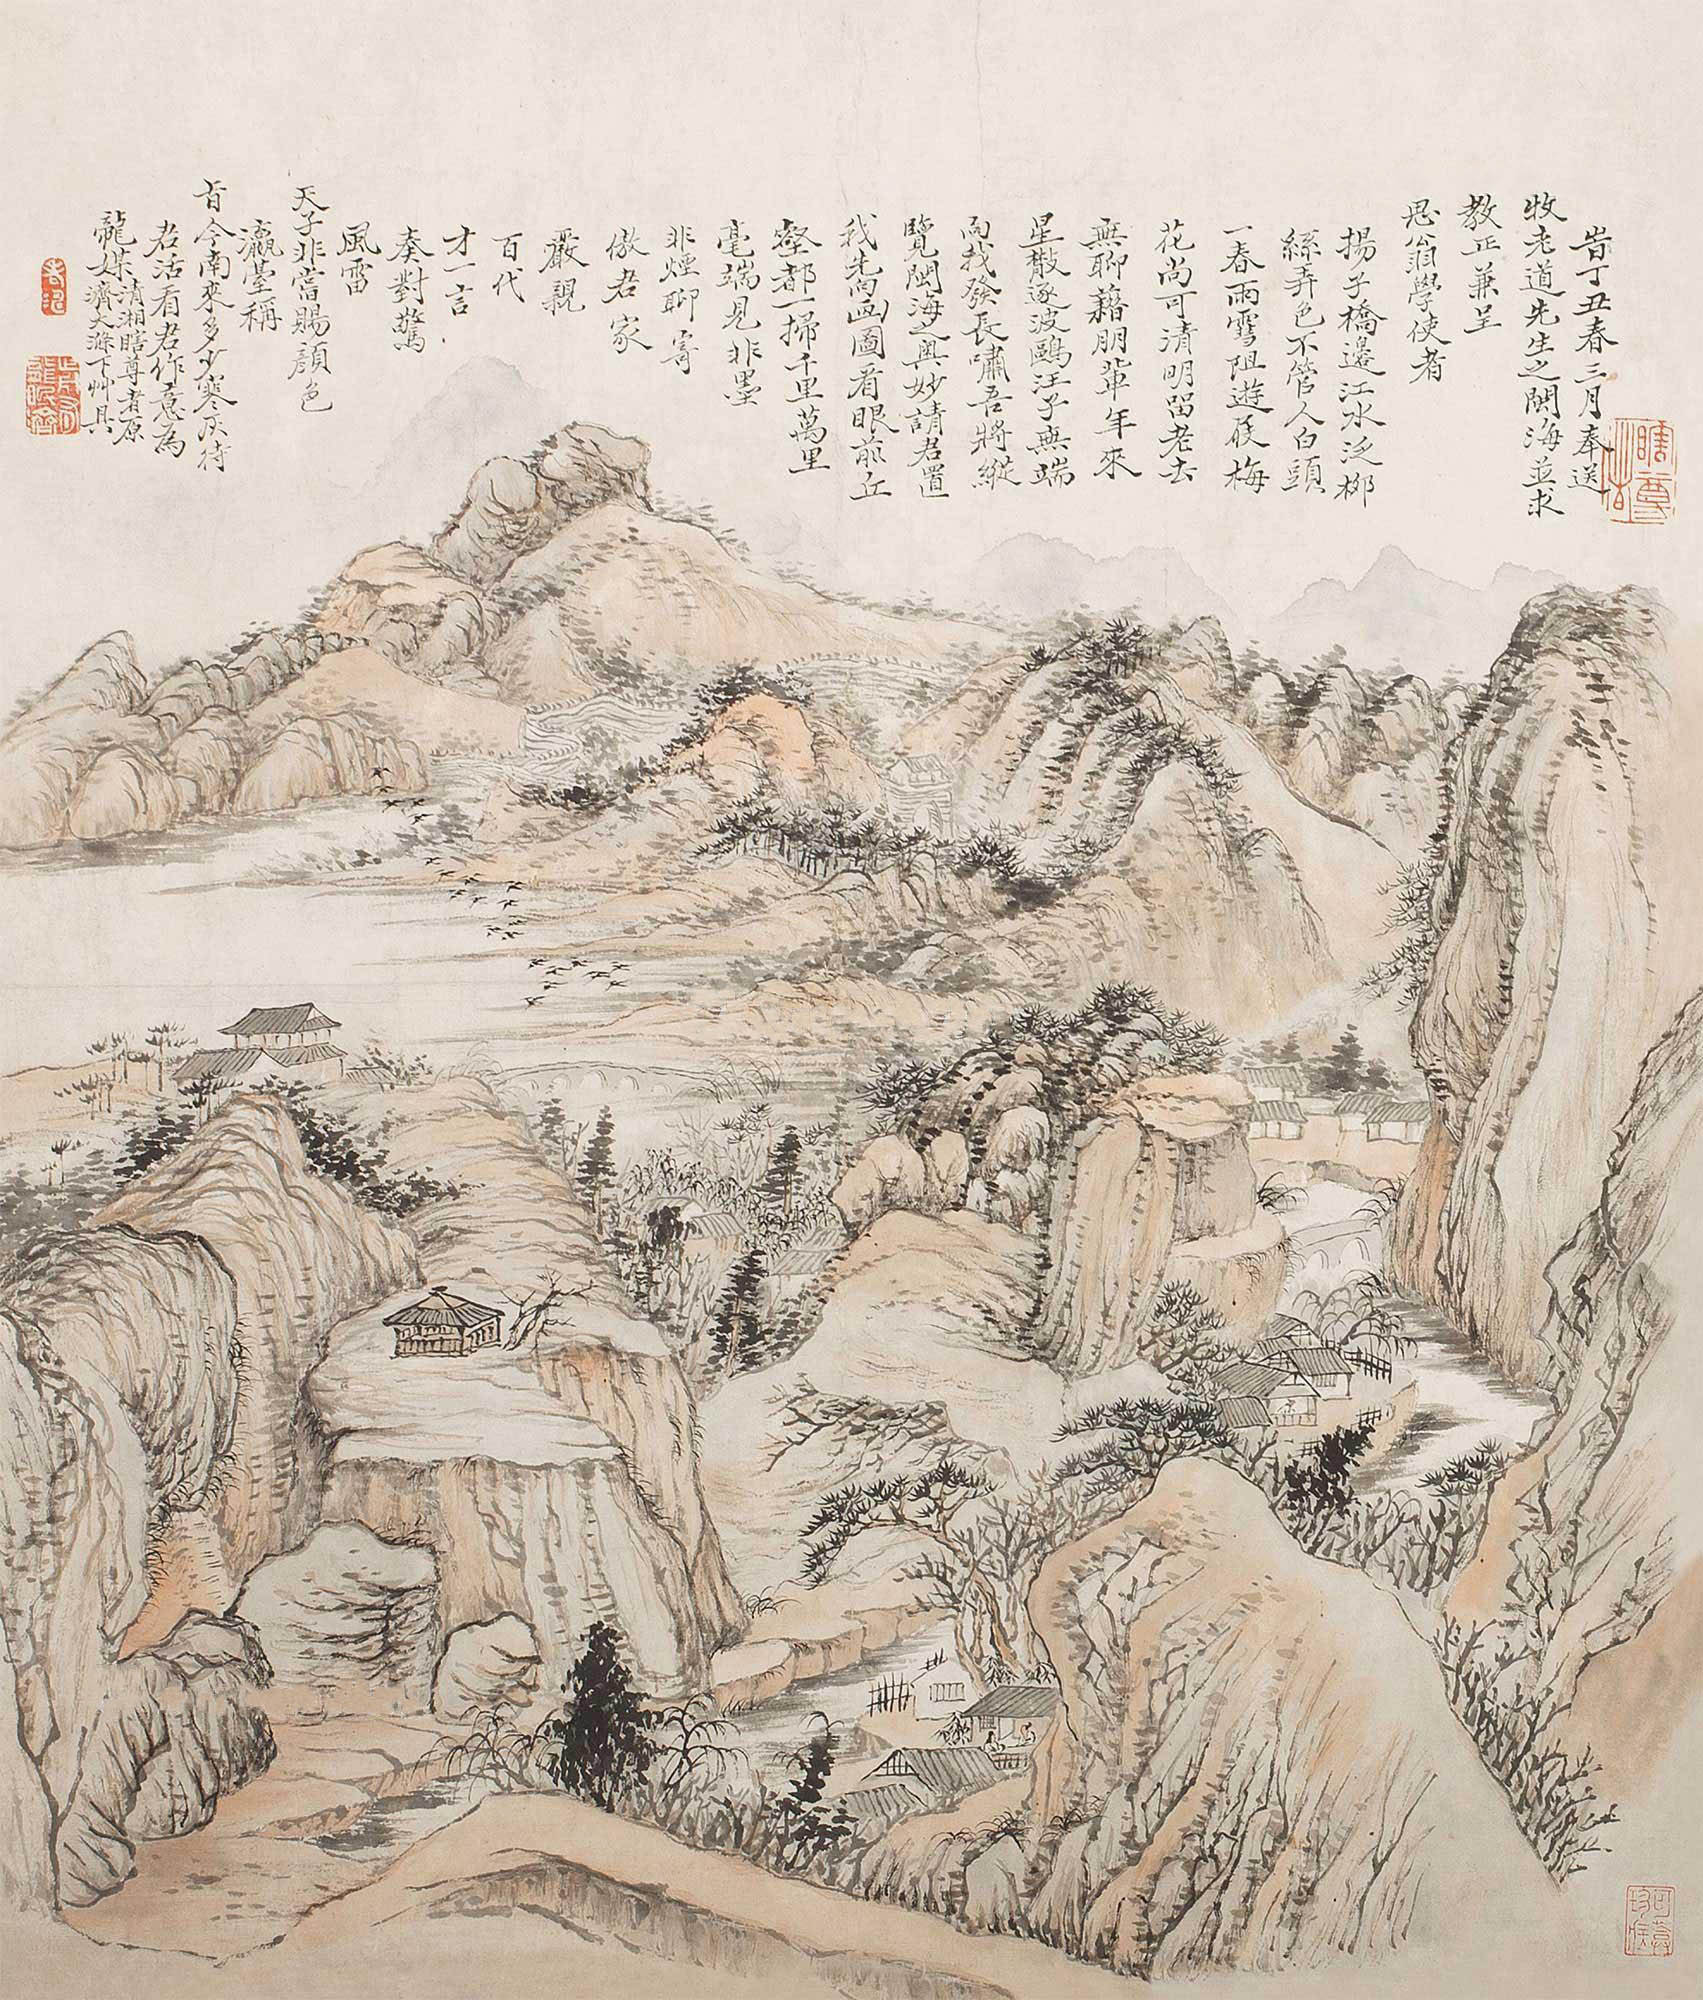 旹丁丑春三月奉送
牧老道先生之閩海並求
教正兼呈
思翁學使者
揚子橋邊江水泛柳
絲弄色不管人白頭
一春雨雪阻遊屐梅
花尚可清明留老去
無聊藉朋輩年來
星散逐波鷗汪子無端
向我發長嘯吾將縱
覽閩海之奧妙請君置
我先向画圖看眼前丘
壑都一掃千里萬里
毫端見非墨
非煙聊寄
傲君家
嚴親
百代
才一言
奏對驚
風雷
天子非常賜顏色
瀛臺稱
旨今南來多少寒灰待
君活看君作意為
龍媒清湘瞎尊者原
濟大滌下艸具
瞎尊者